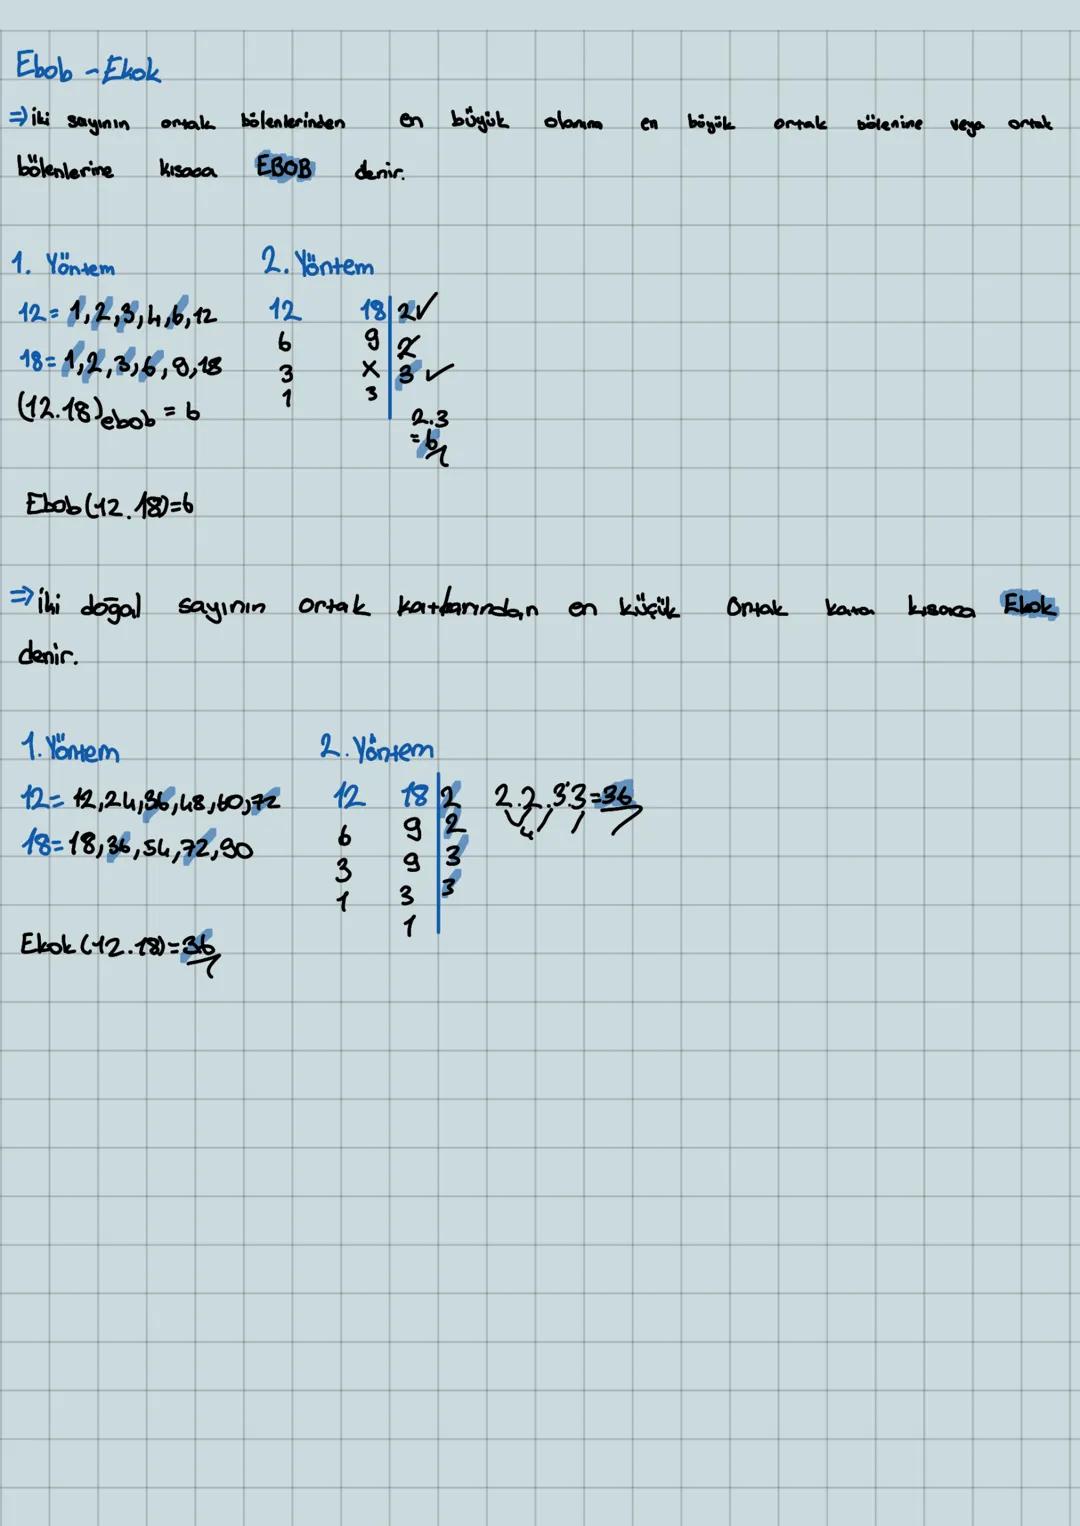 Ebob - Ekok
⇒ iki sayının ortak bölenlerinden en büyük olanına en böyük ortak bölenine veya ortak
bölenlerine kısaca EBOB denir.
1. Yöntem
12 = 1,2,3,4,6,12
18 = 1,2,3,6,9,18
(12.18)ebob = 6
Ebob(12.18)=6
2. Yöntem
12 18 | 2 ✓
6 9 | 2
3 x | 3 ✓
1 3
2.3
= 6
⇒ iki doğal sayının ortak katlarından en küçük ortak kata kısaca Ekok
denir.
1. Yöntem
12 = 12,24,36,48,60,72
18 = 18,36,54,72,90
Ekok (12.18) = 36
2. Yöntem
12 18 | 2
6 9 | 2
3 9 | 3
1 3 | 3
1
2.2.3.3=36
4